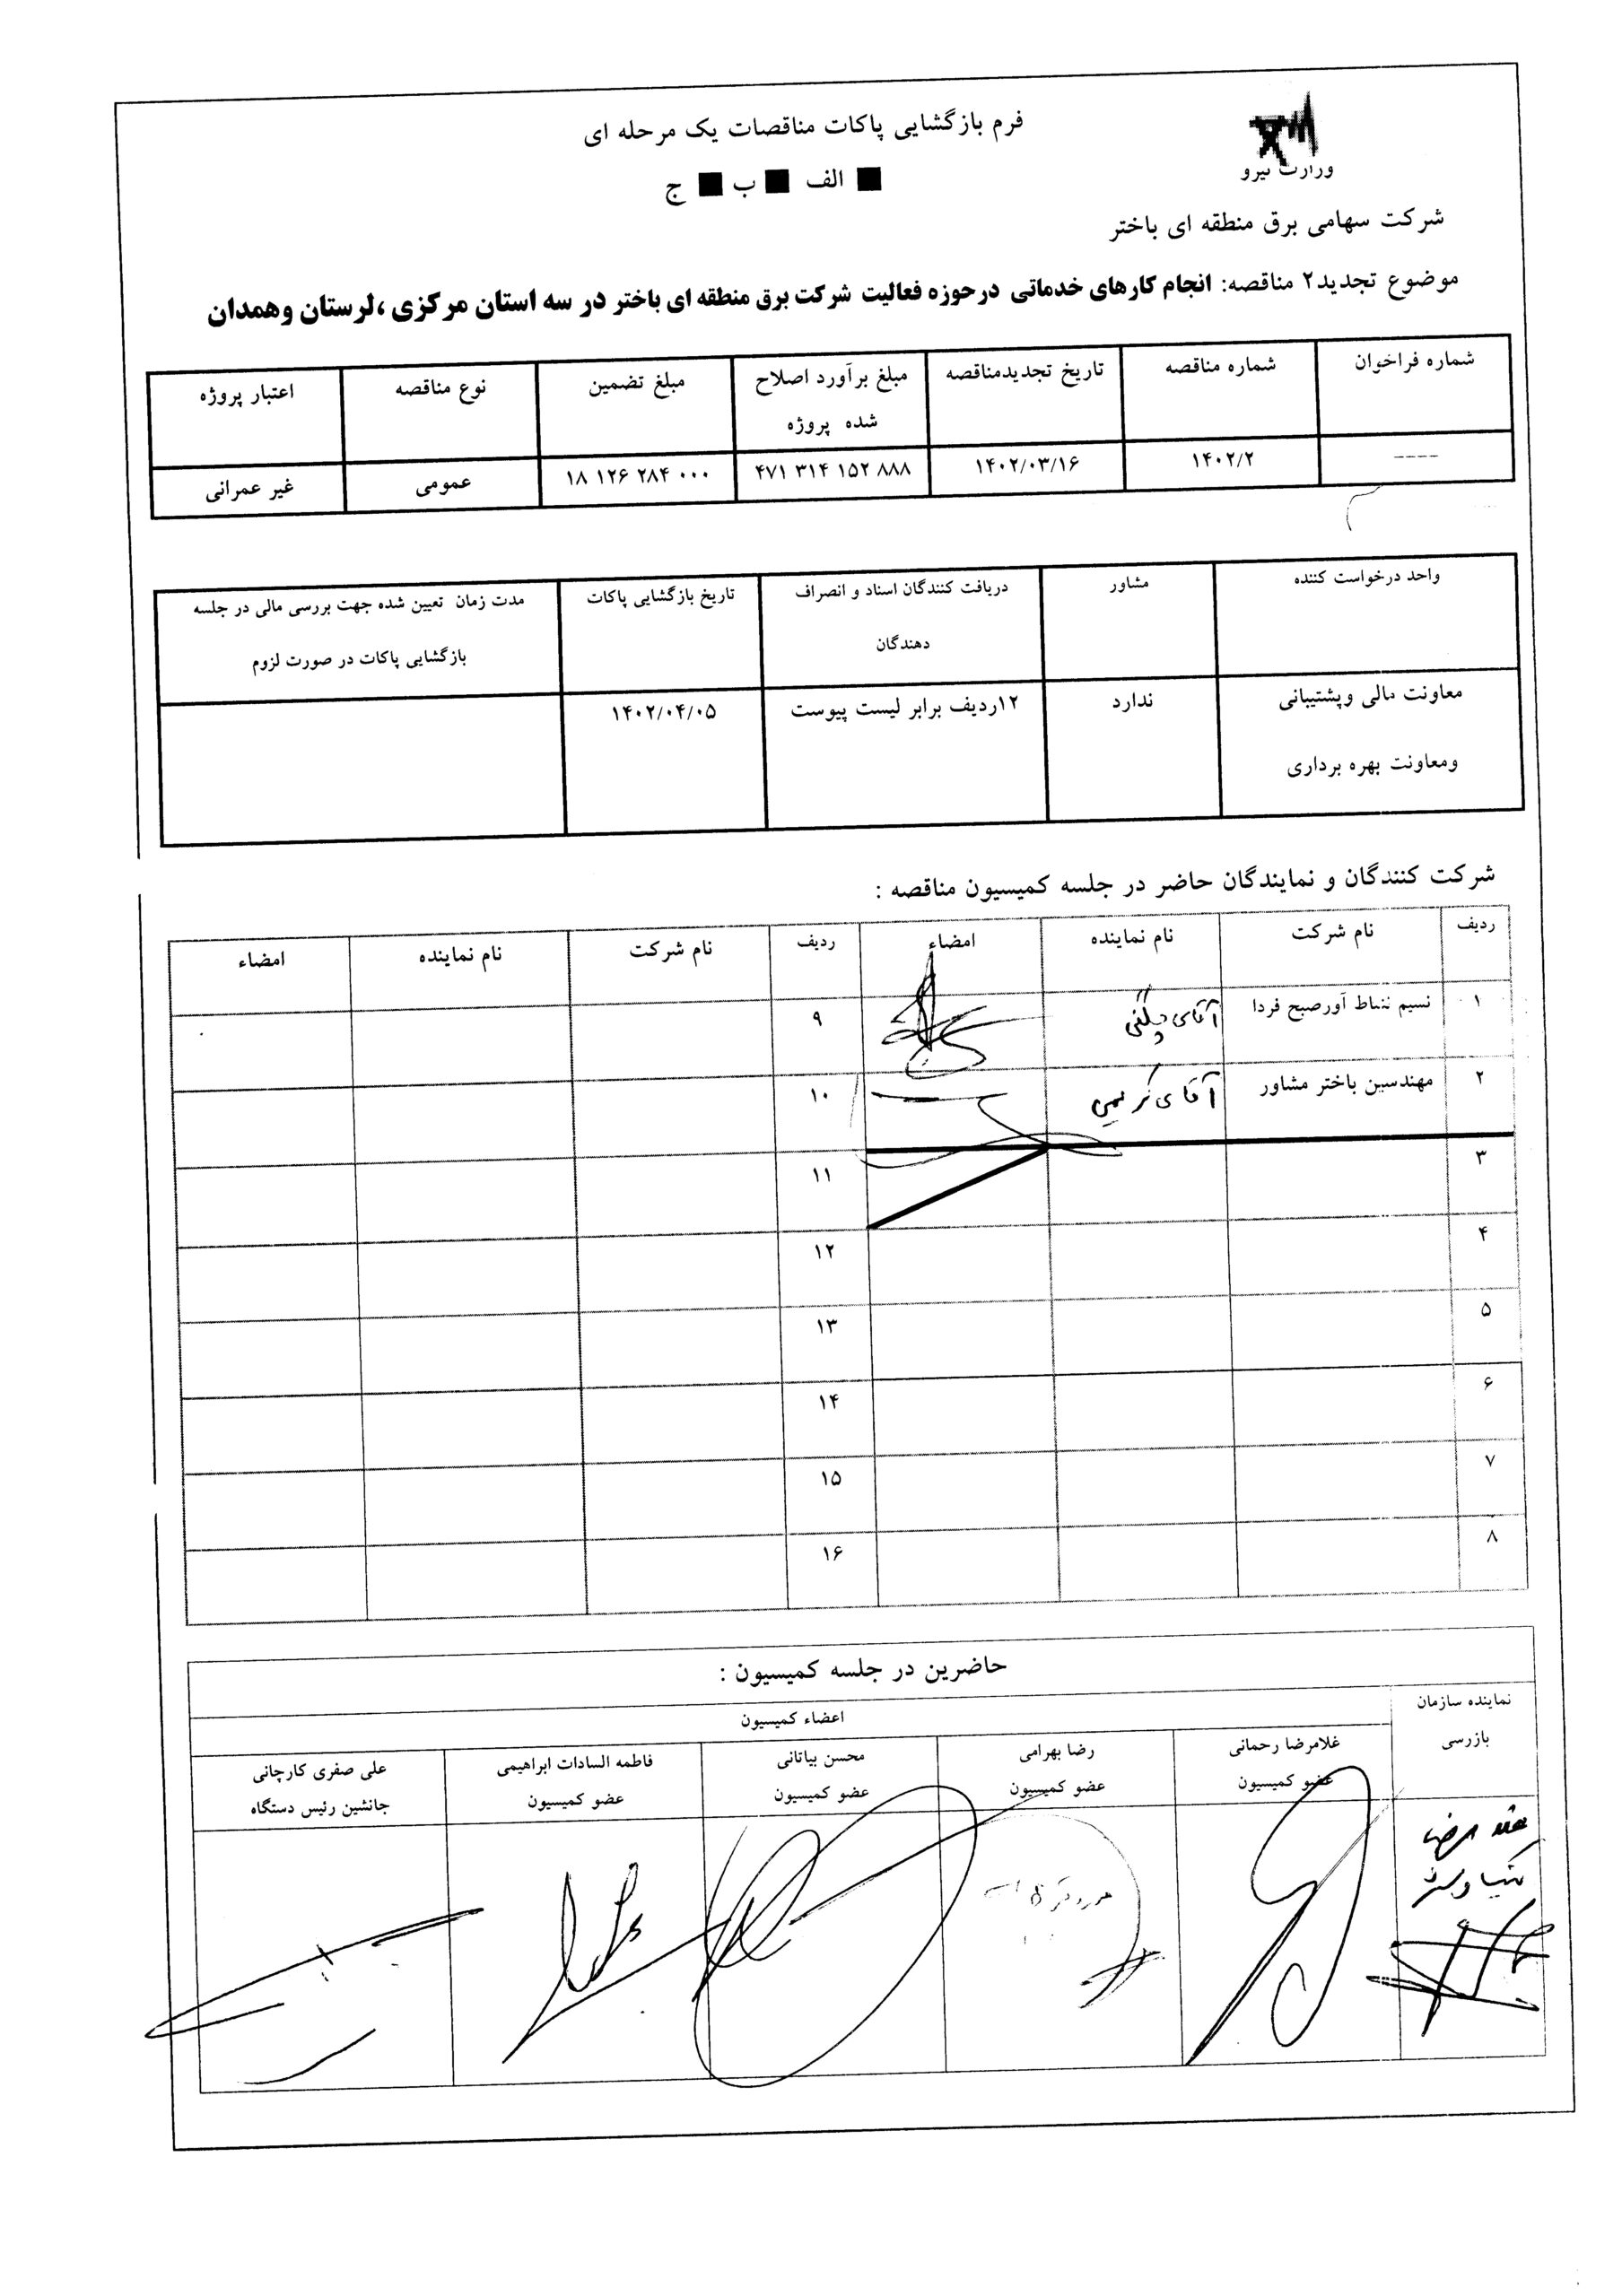 وزارت نیرو
فرم بازگشایی پاکات مناقصات یک مرحله ای
الف ب ج
شرکت سهامی برق منطقه ای باختر
موضوع تجدید۲ مناقصه: انجام کارهای خدماتی درحوزه فعالیت شرکت برق منطقه ای باختر در سه استان مرکزی ،لرستان وهمدان
شماره فراخوان شماره مناقصه تاریخ تجدیدمناقصه مبلغ برآورد اصلاح مبلغ تضمین نوع مناقصه اعتبار پروژه
شده پروژه
---- ۱۴۰۲/۲ ۱۴۰۲/۰۳/۱۶ ۴۷۱ ۳۱۴ ۱۵۲ ۸۸۸ ۱۸ ۱۲۶ ۲۸۴ ۰۰۰ عمومی غیر عمرانی
واحد درخواست کننده مشاور دریافت کنندگان اسناد و انصراف تاریخ بازگشایی پاکات مدت زمان تعیین شده جهت بررسی مالی در جلسه
دهندگان بازگشایی پاکات در صورت لزوم
معاونت مالی وپشتیبانی ندارد ۱۲ردیف برابر لیست پیوست ۱۴۰۲/۰۴/۰۵
ومعاونت بهره برداری
شرکت کنندگان و نمایندگان حاضر در جلسه کمیسیون مناقصه :
ردیف نام شرکت نام نماینده امضاء ردیف نام شرکت نام نماینده امضاء
۱ نسیم نشاط آورصبح فردا آقای چگنی ۹
۲ مهندسین باختر مشاور آقای کریمی ۱۰
۳ ۱۱
۴ ۱۲
۵ ۱۳
۶ ۱۴
۷ ۱۵
۸ ۱۶
حاضرین در جلسه کمیسیون :
نماینده سازمان
بازرسی
اعضاء کمیسیون
غلامرضا رحمانی رضا بهرامی محسن بیاتانی فاطمه السادات ابراهیمی علی صفری کارچانی
عضو کمیسیون عضو کمیسیون عضو کمیسیون عضو کمیسیون جانشین رئیس دستگاه